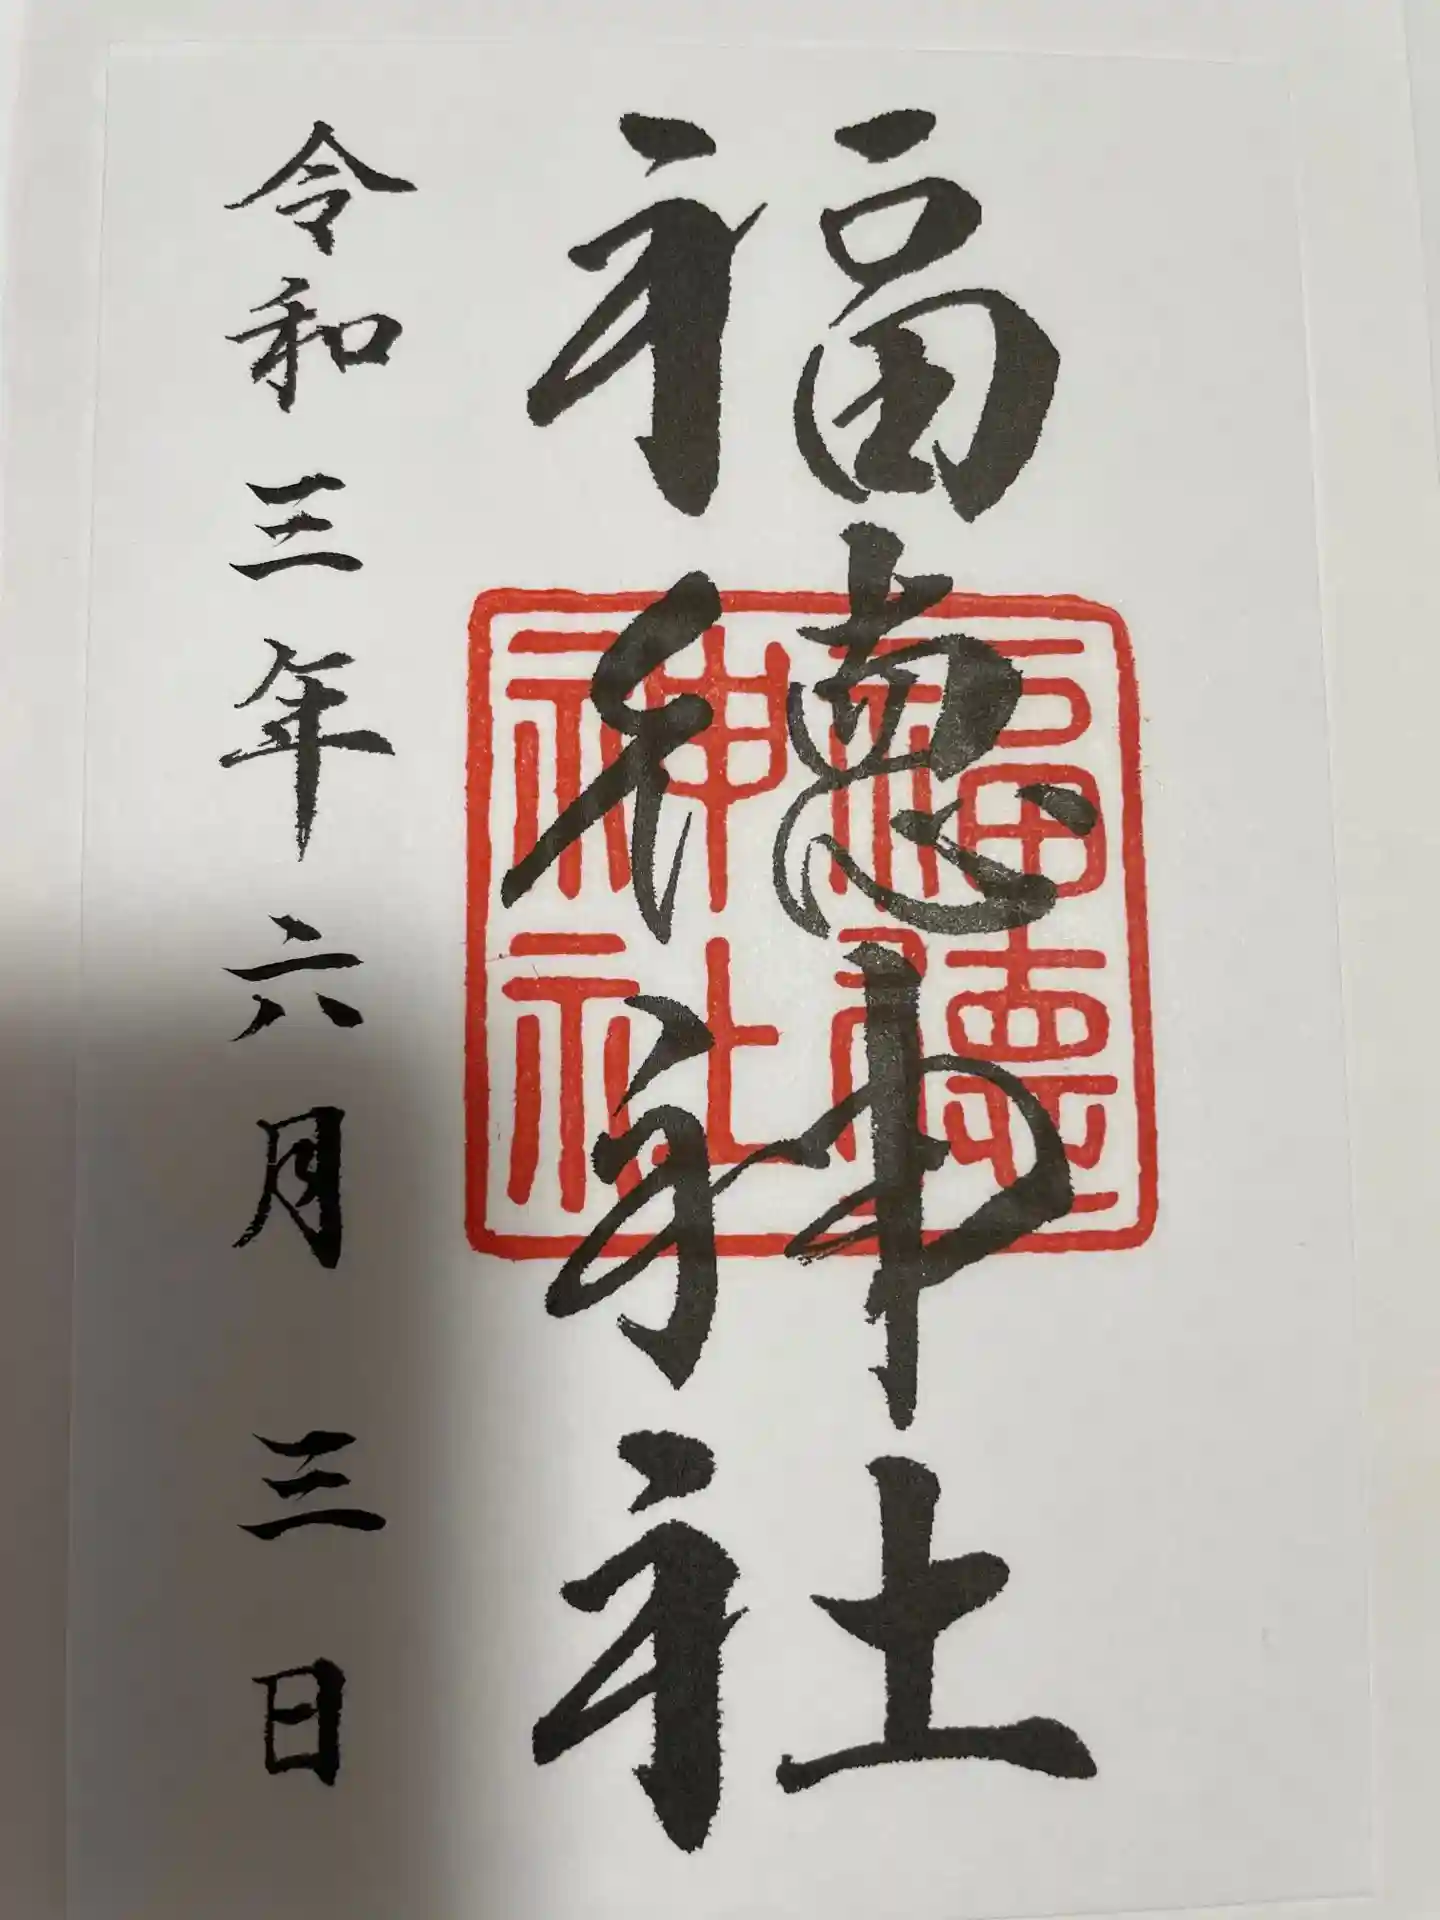 福徳神社
福徳神社
令和三年六月三日